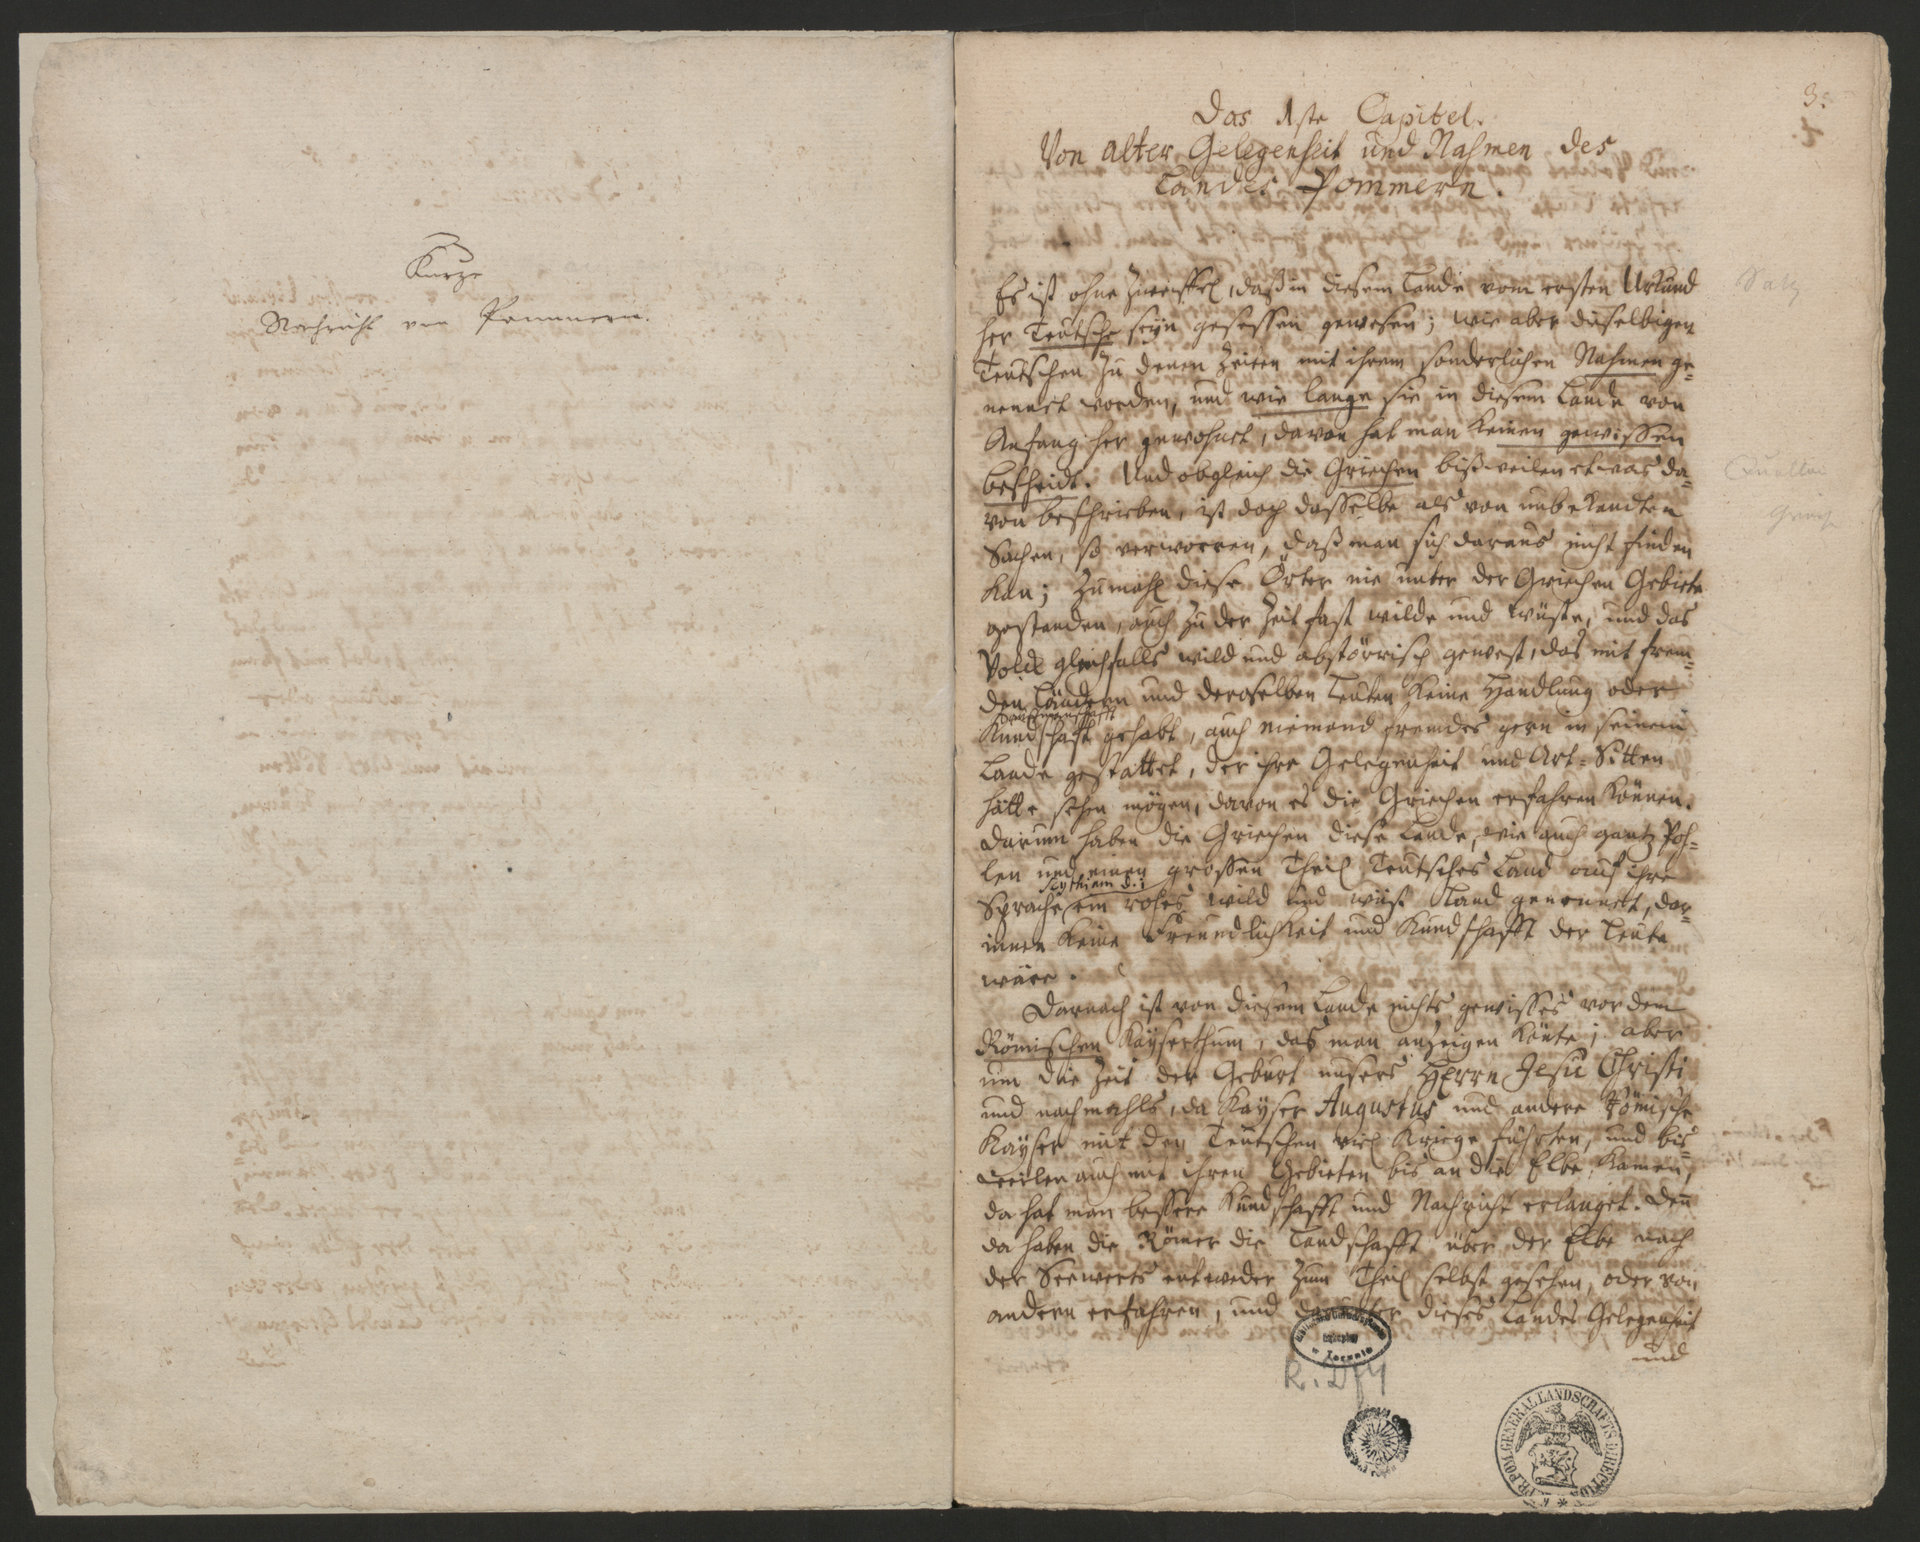 Kurze
Nachricht von Pommern.
3.
Das 1ste Capitel.
Von alter Gelegenheit und Nahmen des
Landes Pommern.
Es ist ohne Zweiffel, daß in diesem Lande vom ersten Urkund
her Teutsche seyn gesessen gewesen; wie aber dieselbigen
Teutschen zu denen Zeiten mit ihrem sonderlichen Nahmen ge-
nennet worden, und wie lange sie in diesem Lande von
Anfang her gewohnet, davon hat man keinen gewissen
bescheidt. Und obgleich die Griechen bißweilen etwas da-
von beschrieben, ist doch dasselbe als von unbekandten
Sachen, so verworren, daß man sich daraus nicht finden
kan; Zumahl diese Örter nie unter der Griechen Gebiete
gestanden, auch zu der Zeit fast wilde und wüste, und das
Volck gleichfalls wild und abstörrisch gewest, das mit frem-
den Ländern und deroselben Leuten keine Handlung oder
Kundschafft gehabt, auch niemand fremdes gern in seinem
Lande gestattet, der ihre Gelegenheit und Art-Sitten
hätte sehen mögen, davon es die Griechen erfahren können.
Darum haben die Griechen diese Lande, wie auch gantz Poh-
len und einen grossen Theil Teutsches Land auf ihre
Scythiam d.i
Sprache ein rohes wild und wüst Land genennet, dar-
innen keine Freundlichkeit und Kundschafft der Leute
wäre.
Darnach ist von diesem Lande nichts gewisses vor dem
Römischen Kayserthum, das man anzeigen könte; aber
um die Zeit der Geburt unsers HErrn Jesu Christi
und nachmahls, da Kayser Augustus und andere Römische
Kayser mit den Teutschen viel Kriege führten, und bis-
weilen auch mit ihren Gebieten bis an die Elbe kamen,
da hat man bessere Kundschafft und Nachricht erlanget. Den
da haben die Römer die Landschafft über der Elbe nach
der Seewerts entweder zum Theil selbst gesehen, oder von
andern erfahren, und darunter dieses Landes Gelegenheit
und
Satz
Quellen
Griech
GENERAL LANDSCHAFTS DIRECTION